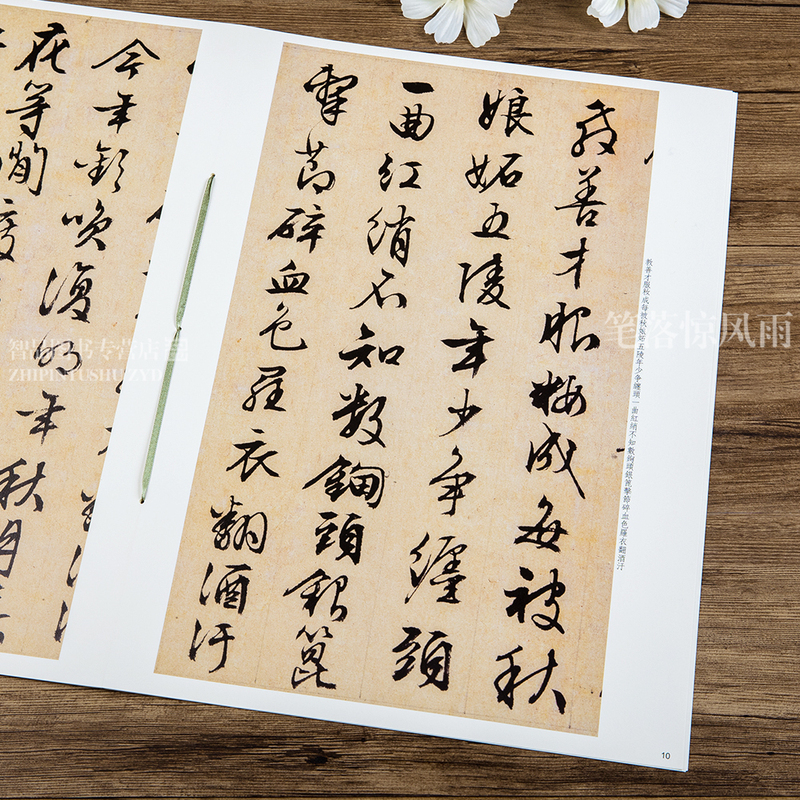 教善才服粧成每被秋
娘妬五陵年少争纏頭
一曲紅綃不知数鈿頭銀篦
擊節碎血色羅衣翻酒汙
教善才服妝成每被秋娘妬五陵年少争纏頭一曲紅綃不知數鈿頭銀篦擊節碎血色羅衣翻酒汙
10
今年歡咲復明年秋月春
花等閑度
笔落惊风雨
智品图书专营店
ZHIPINTUSHUZYD